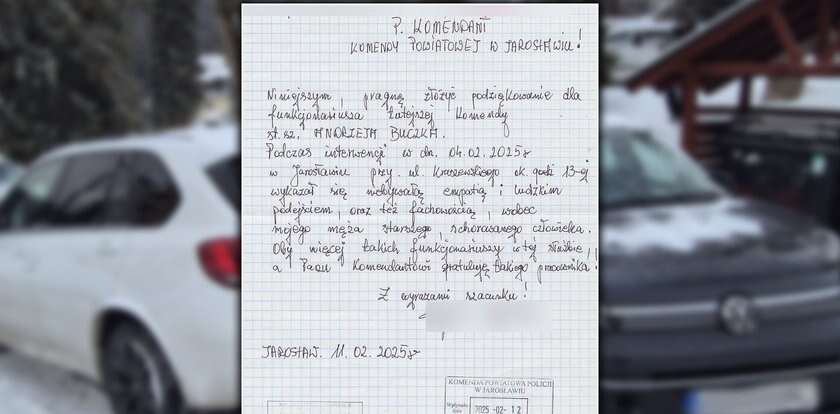 P. KOMENDANT
KOMENDY POWIATOWEJ W JAROSŁAWIU!
Niniejszym, pragnę złożyć podziękowanie dla
funkcjonariusza tutejszej Komendy
st. sz. ANDRZEJA BUCZKA.
Podczas interwencji w dn. 04.02.2025r
w Jarosławiu przy. ul. Kraszewskiego ok. godz 13-ej
wykazał się niebywałą empatią i ludzkim
podejściem, oraz też fachowością, wobec
mojego męża starszego, schorowanego człowieka.
Oby więcej takich funkcjonariuszy w tej służbie!
a Panu Komendantowi gratuluję takiego pracownika!
Z wyrazami szacunku!
JAROSŁAW. 11.02.2025r
KOMENDA POWIATOWA POLICJI
W JAROSŁAWIU
Wpłynęło
dnia 2025-02-12